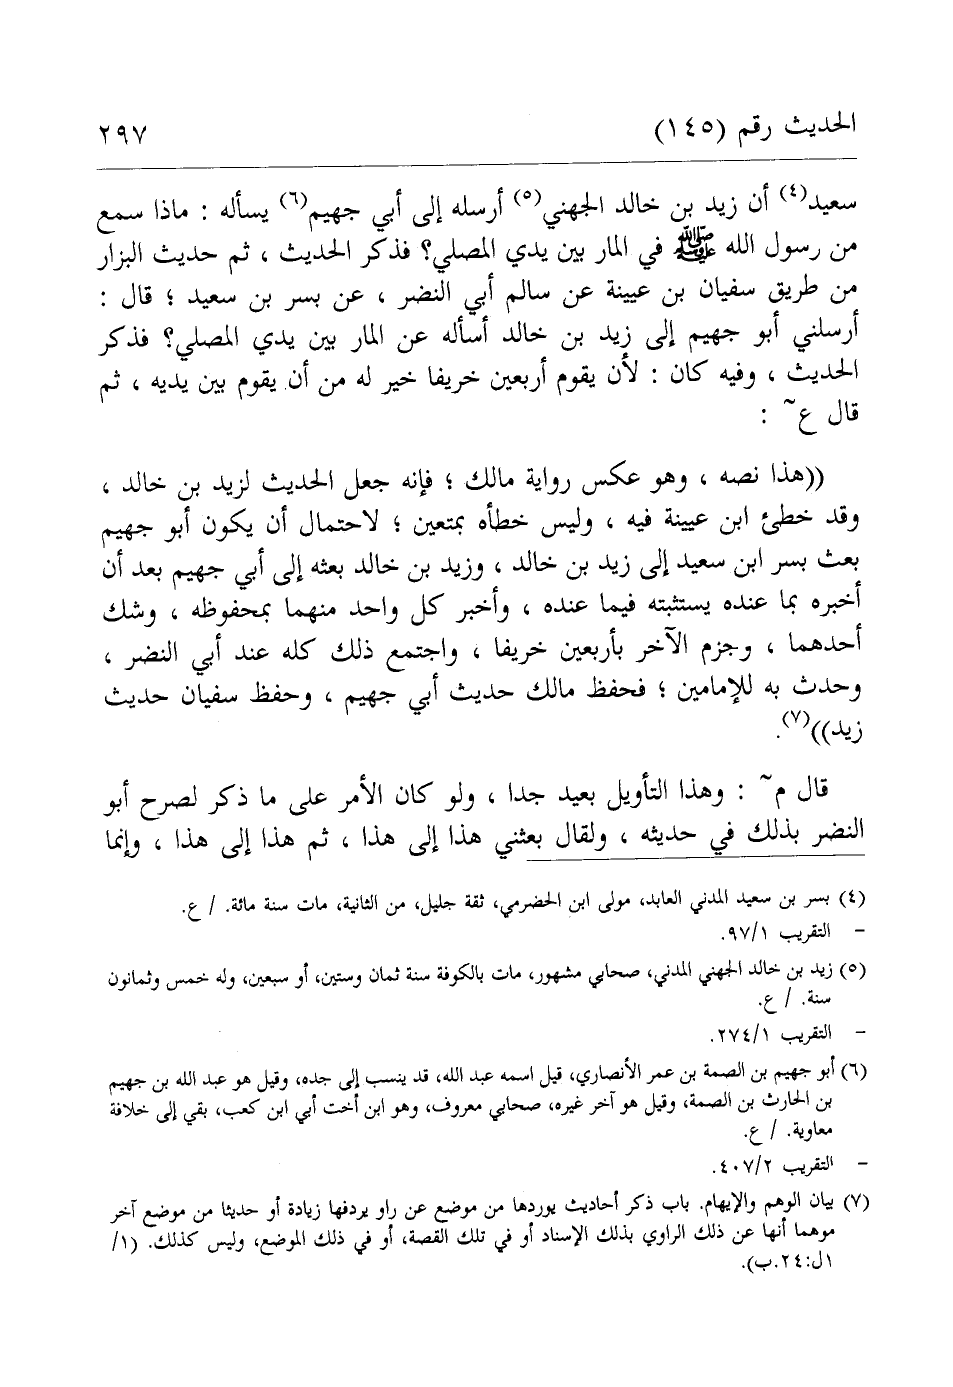 الحديث رقم (١٤٥) ٢٩٧
سعيد(٤) أن زيد بن خالد الجهني(٥) أرسله إلى أبي جهيم(٦) يسأله : ماذا سمع
من رسول الله ﷺ في المار بين يدي المصلي؟ فذكر الحديث ، ثم حديث البزار
من طريق سفيان بن عيينة عن سالم أبي النضر ، عن بسر بن سعيد ؛ قال :
أرسلني أبو جهيم إلى زيد بن خالد أسأله عن المار بين يدي المصلي؟ فذكر
الحديث ، وفيه كان : لأن يقوم أربعين خريفا خير له من أن يقوم بين يديه ، ثم
قال ع~ :
((هذا نصه ، وهو عكس رواية مالك ؛ فإنه جعل الحديث لزيد بن خالد ،
وقد خطئ ابن عيينة فيه ، وليس خطأه بمتعين ؛ لاحتمال أن يكون أبو جهيم
بعث بسر ابن سعيد إلى زيد بن خالد ، وزيد بن خالد بعثه إلى أبي جهيم بعد أن
أخبره بما عنده يستثبته فيما عنده ، وأخبر كل واحد منهما بمحفوظه ، وشك
أحدهما ، وجزم الآخر بأربعين خريفا ، واجتمع ذلك كله عند أبي النضر ،
وحدث به للإمامين ؛ فحفظ مالك حديث أبي جهيم ، وحفظ سفيان حديث
زيد))(٧).
قال م~ : وهذا التأويل بعيد جدا ، ولو كان الأمر على ما ذكر لصرح أبو
النضر بذلك في حديثه ، ولقال بعثني هذا إلى هذا ، ثم هذا إلى هذا ، وإنما
(٤) بسر بن سعيد المدني العابد، مولى ابن الحضرمي، ثقة جليل، من الثانية، مات سنة مائة. / ع.
- التقريب ٩٧/١.
(٥) زيد بن خالد الجهني المدني، صحابي مشهور، مات بالكوفة سنة ثمان وستين، أو سبعين، وله خمس وثمانون
سنة. / ع.
- التقريب ٢٧٤/١.
(٦) أبو جهيم بن الصمة بن عمر الأنصاري، قيل اسمه عبد الله، قد ينسب إلى جده، وقيل هو عبد الله بن جهيم
بن الحارث بن الصمة، وقيل هو آخر غيره، صحابي معروف، وهو ابن أخت أبي ابن كعب، بقي إلى خلافة
معاوية. / ع.
- التقريب ٤٠٧/٢.
(٧) بيان الوهم والإيهام. باب ذكر أحاديث يوردها من موضع عن راو يردفها زيادة أو حديثا من موضع آخر
موهما أنها عن ذلك الراوي بذلك الإسناد أو في تلك القصة، أو في ذلك الموضع، وليس كذلك. (١/
ل:٢٤.ب).